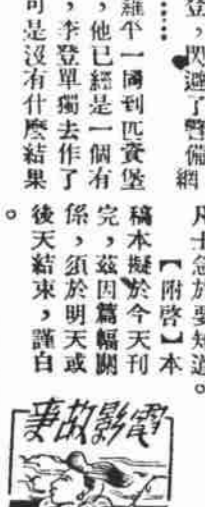 登，閃避了警備網
……
羅平一同到匹資堡
，他已經是一個有
，李登單獨去作了
可是沒有什麼結果
凡士急於要知道。
【附啓】本
稿本擬於今天刊
完，茲因篇幅關
係，須於明天或
後天結束，謹白
。
電影故事